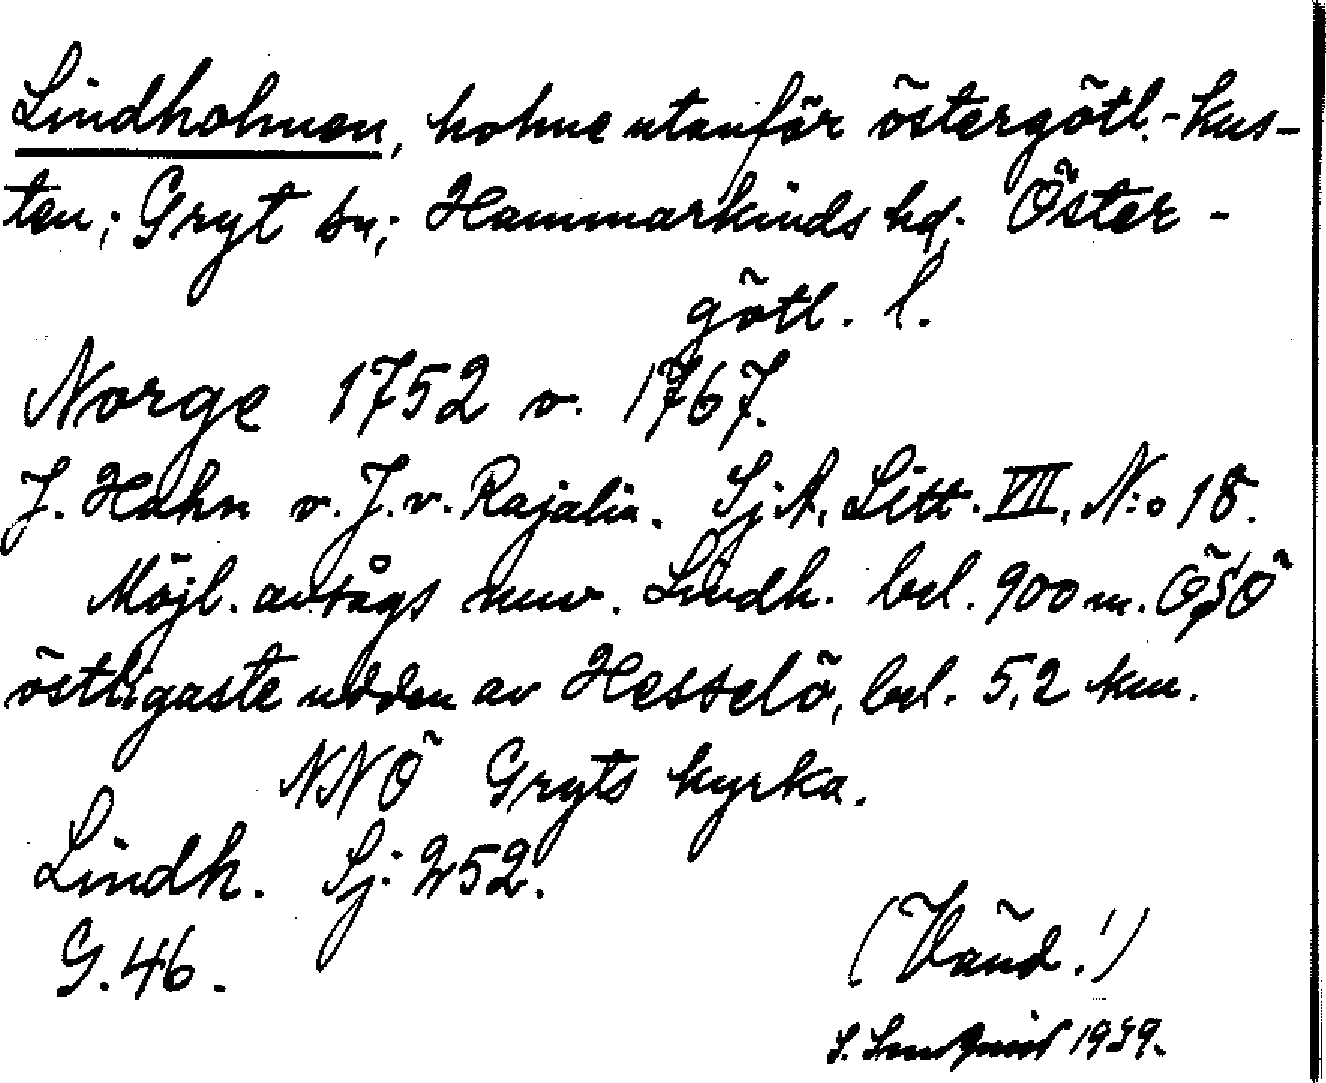 Lindholmen, holme utanför östergötl.-kus-
ten; Gryt sn; Hammarkinds hd. Öster-
götl. l.
Norge 1752 o. 1767.
J. Hahn o. J. v. Rajalin. Sj.A. Litt. VII, N:o 18.
Möjl. avsågs nuv. Lindh. bel. 900 m. ÖSÖ
östligaste udden av Hesselö, bel. 5,2 km.
NNÖ Gryts kyrka.
Lindh. Sj: 252.
G. 46.
(Vänd!)
S. 1939.